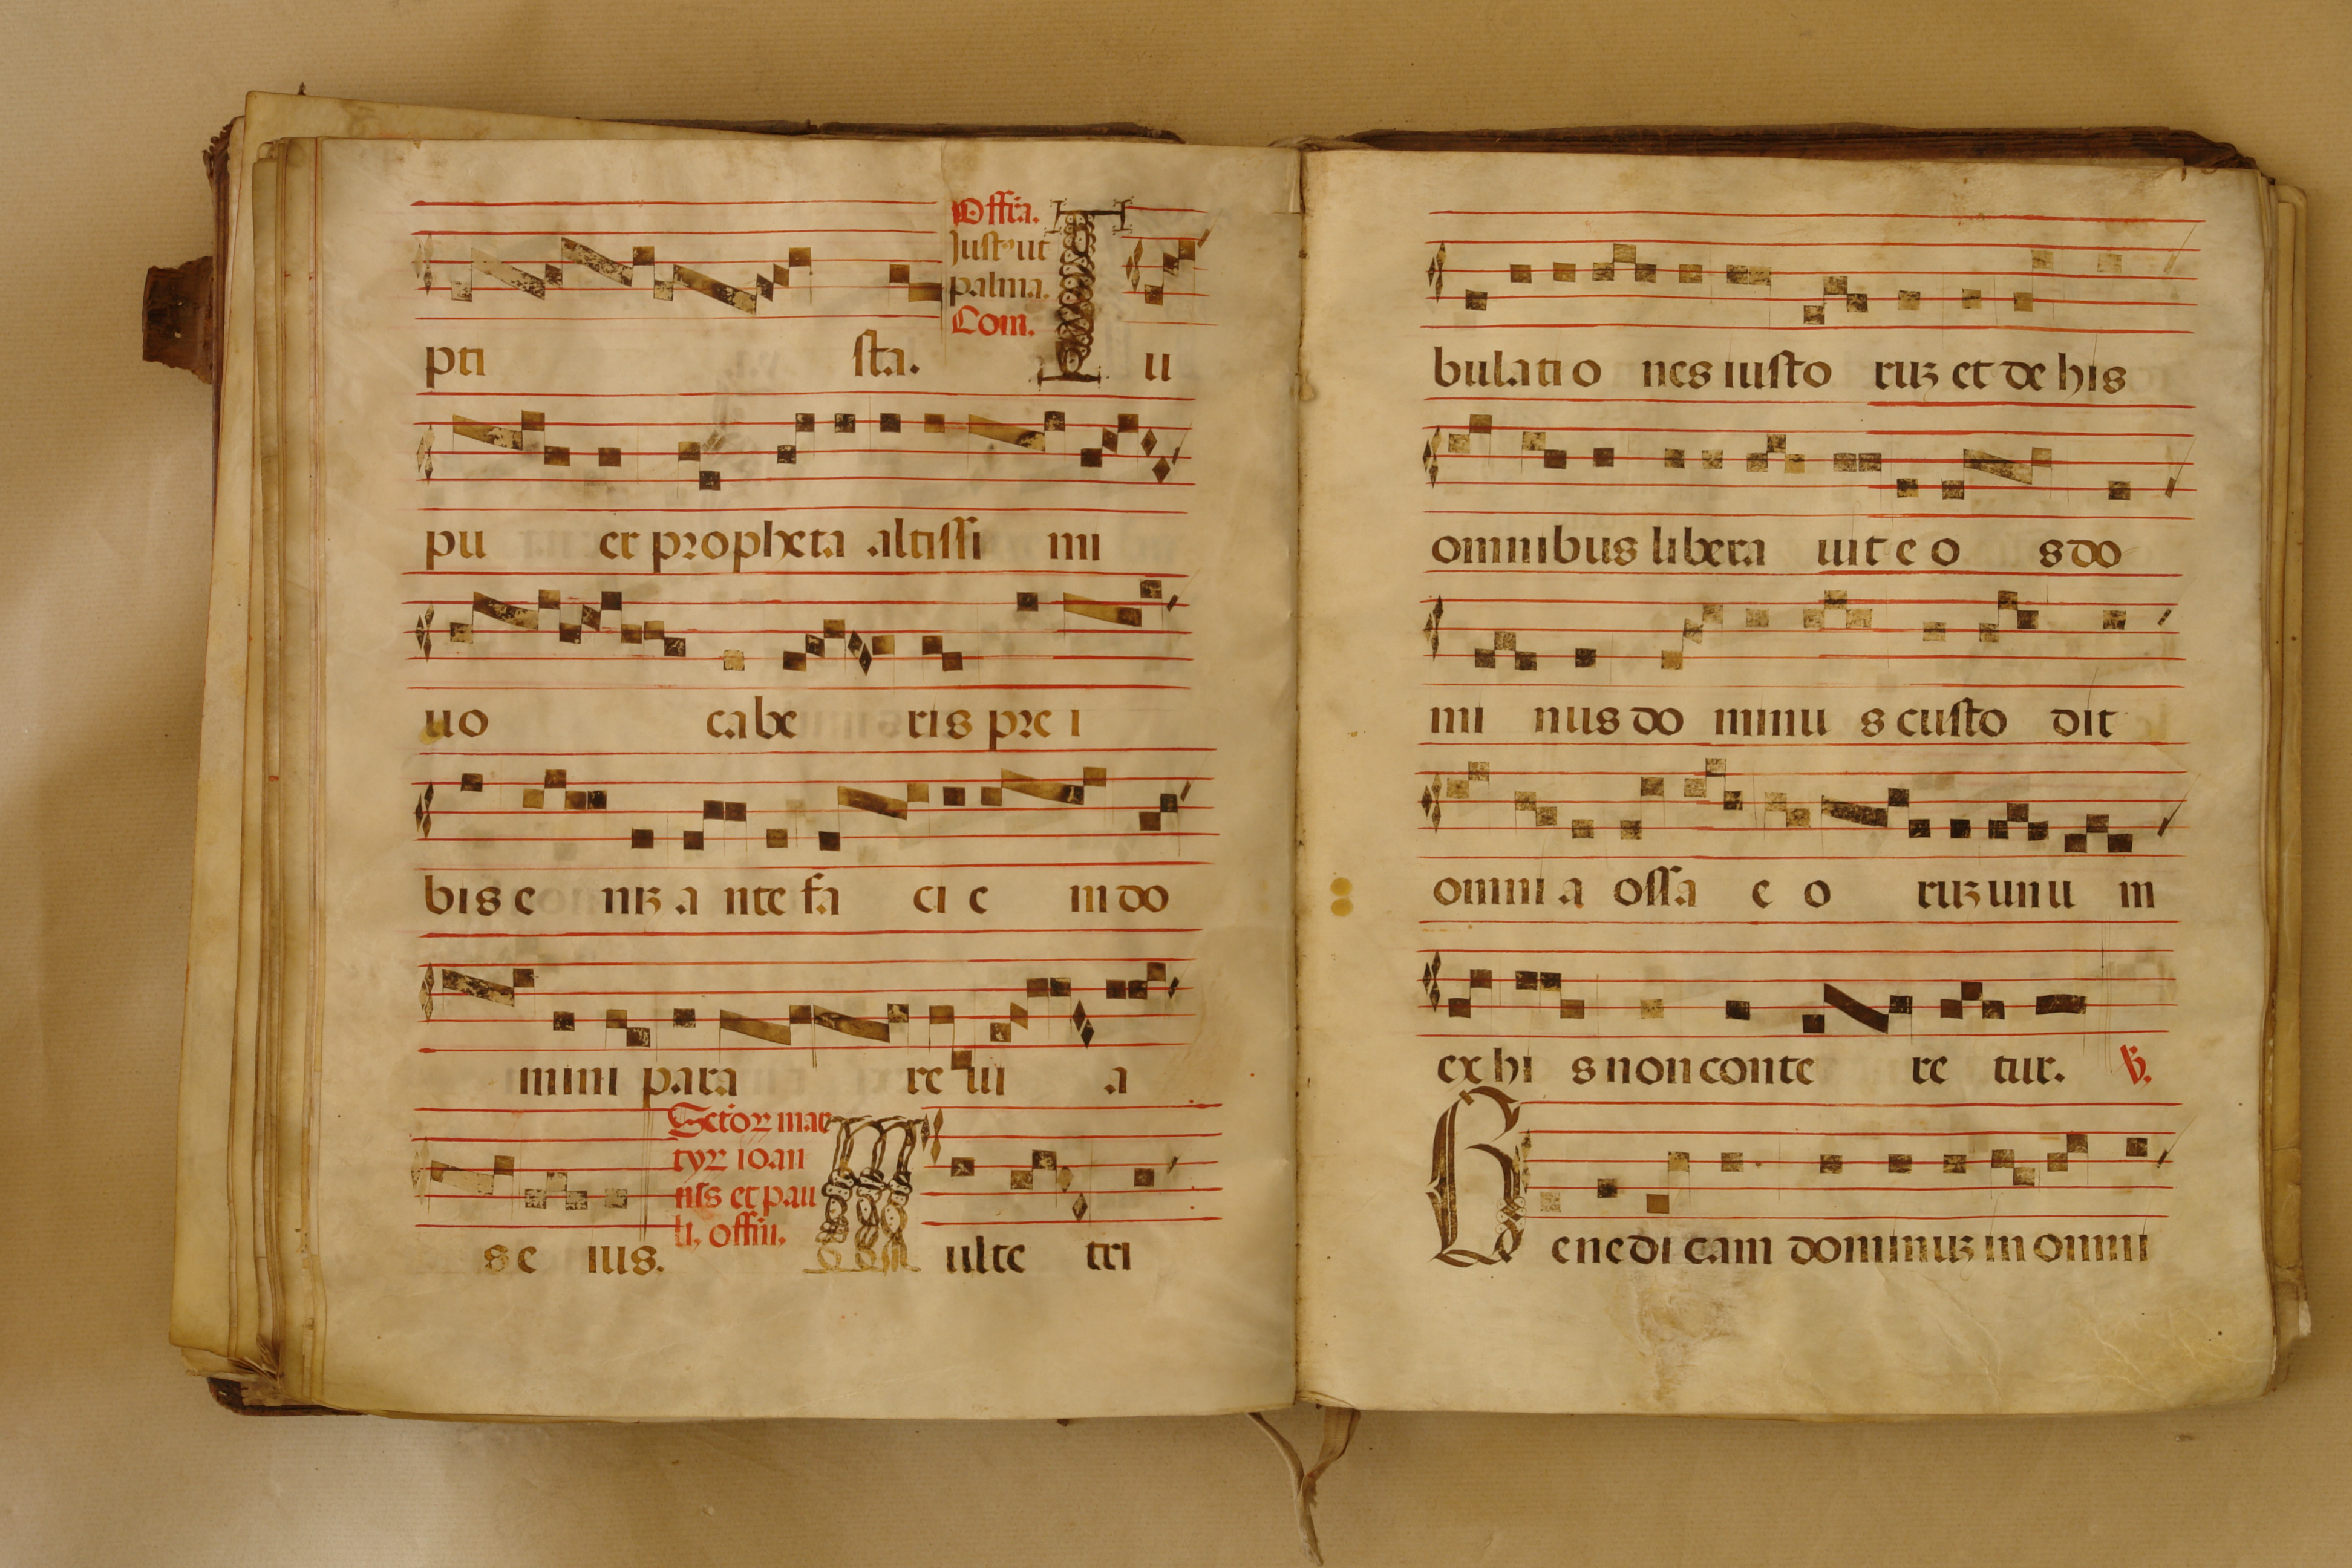 pti sta.
Offra.
Just9 ut
palma.
Com.
Tu
pu er propheta altissi mi
uo cabe ris pre i
bis e niz a nte fa ci e m do
mini para re ui a
s e ius.
Sctoꝝ mar
tyꝝ ioan
nis et pau
li, offm,
Multe tri
bulatio nes iusto ruz et de his
omnibus libera uit e o s do
mi nus do minu s custo dit
omni a ossa e o ruz unu m
ex hi s non conte re tur. ℣.
Benedi cam dominuz in omni